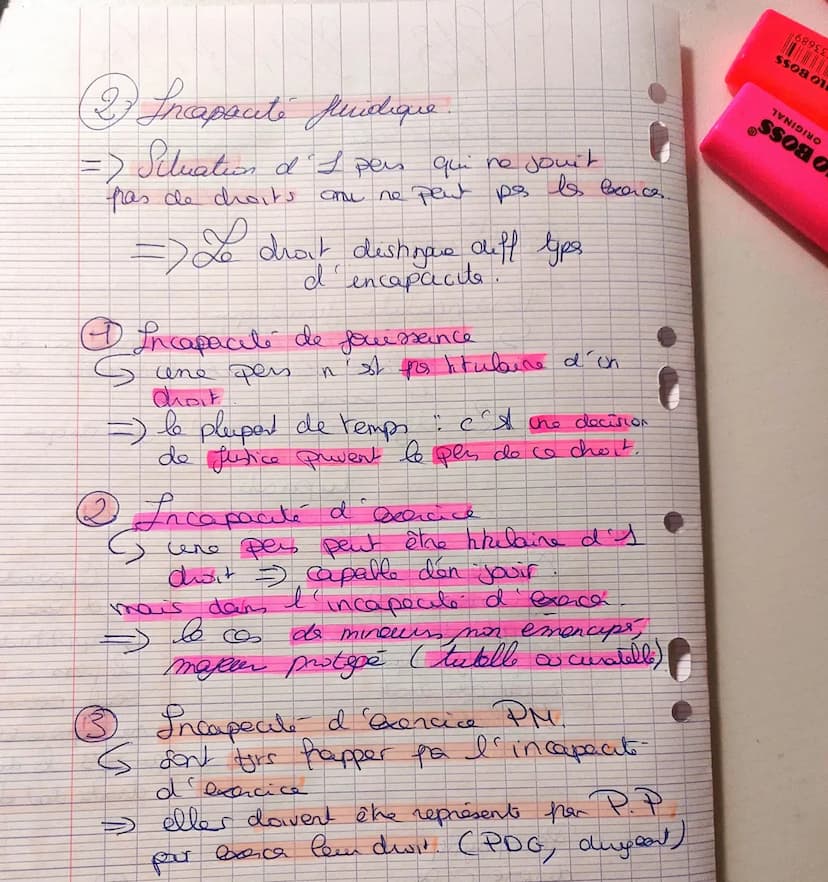 2) Incapacité juridique.
=> Situation d'1 pers qui ne jouit
pas de droits ou ne peut pas les exercer.
=> Le droit distingue diff types
d'incapacité.
1 Incapacité de jouissance
↳ une pers n'est pas titulaire d'un
droit
=> la plupart de temps : c'st une decision
de justice privent la pers de ce droit.
2 Incapacité d'exercice
↳ une pers peut être titulaire d'1
droit => capable d'en jouir.
mais dans l'incapacité d'exercer.
=> le cas de mineurs non émancipé,
majeur protégé (tutelle ou curatelle)
3 Incapacité d'exercice PM.
↳ sont tjrs frapper par l'incapacité
d'exercice
=> elles doivent être représent par P.P
pur exercer leur droit. (PDG, dirigeant)
33689
BOSS
ORIGINAL
BOSS®